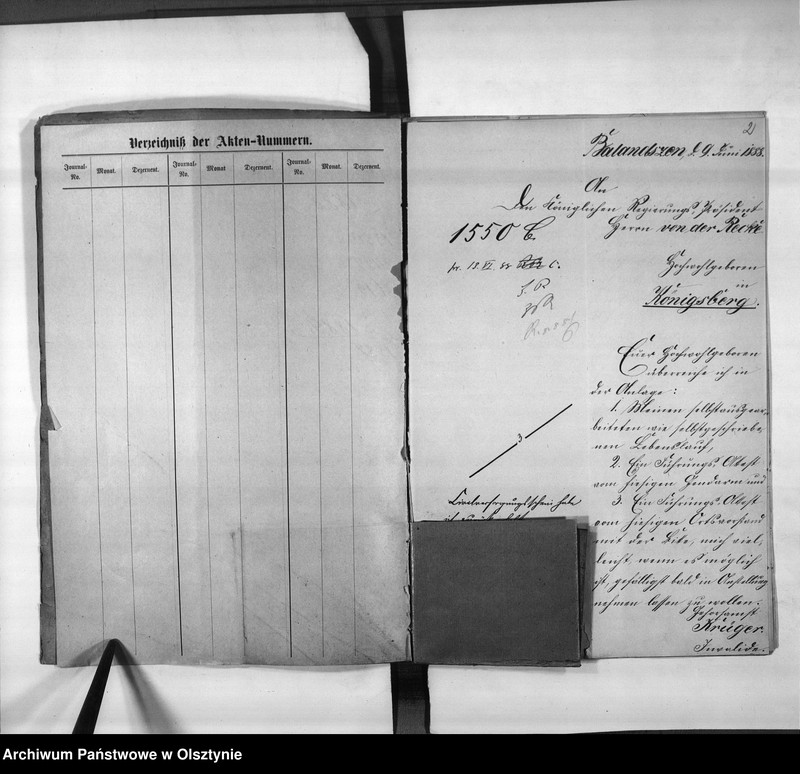 Verzeichniß der Akten-Nummern.
Journal-No. Monat. Dezernent. Journal-No. Monat Dezernent. Journal-No. Monat. Dezernent.
2
d. 9. Juni 1888.
An
Den Königlichen Regierungs-Präsident
Herrn von der Recke
1550 C.
pr. 13. VI. 88 C.
Hochwohlgeboren
in
Königsberg.
Euer Hochwohlgeboren
überreiche ich in
der Anlage:
1. Meinen selbstausgear-
beiteten wie selbstgeschriebe-
nen Lebenslauf,
2. Ein Führungs-Attest
vom hiesigen Gendarm und
3. Ein Führungs-Attest
vom hiesigen Ortsvorstand
mit der Bitte, mich viel-
leicht, wenn es möglich
ist, gefälligst bald in Anstellung
nehmen lassen zu wollen.
Gehorsamst
Krüger.
Invalide.
3
Civilversorgungsschein habe
Archiwum Państwowe w Olsztynie